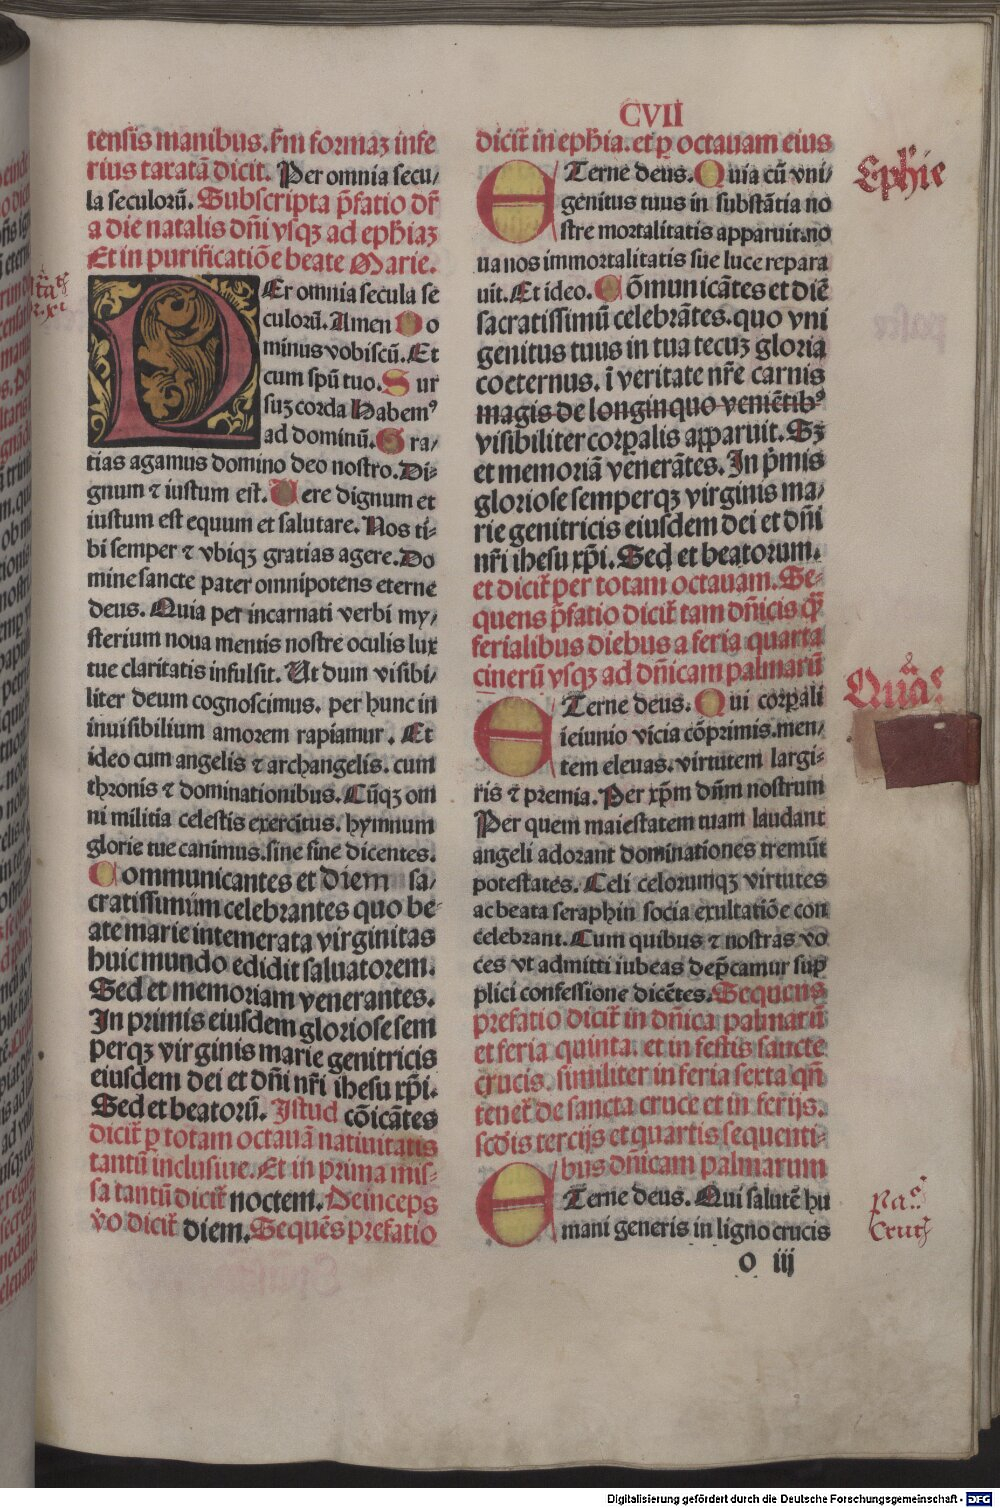 CVII
tensis manibus. s̃m formaʒ infe
rius taratã dicit. Per omnia secu/
la seculorũ. Subscripta p̃fatio dr̃
a die natalis dñi vsqʒ ad eph̃iaʒ
Et in purificatiõe beate Marie.
PEr omnia secula se
culorũ. Amen Do
minus vobiscũ. Et
cum sp̃u tuo. Sur
suʒ corda Habemꝰ
ad dominũ. Gra/
tias agamus domino deo nostro. Di⸗
gnum ⁊ iustum est. Uere dignum et
iustum est equum et salutare. Nos ti⸗
bi semper ⁊ vbiqʒ gratias agere. Do
mine sancte pater omnipotens eterne
deus. Quia per incarnati verbi my/
sterium noua mentis nostre oculis lux
tue claritatis infulsit. Ut dum visibi/
liter deum cognoscimus. per hunc in
inuisibilium amorem rapiamur. Et
ideo cum angelis ⁊ archangelis. cum
thronis ⁊ dominationibus. Cũqʒ om
ni militia celestis exercitus. hymnum
glorie tue canimus. sine fine dicentes.
Communicantes et diem sa/
cratissimum celebrantes quo be⸗
ate marie intemerata virginitas
huic mundo edidit saluatorem.
Sed et memoriam venerantes.
In primis eiusdem gloriose sem
perqʒ virginis marie genitricis
eiusdem dei et dñi nr̃i ihesu xp̃i.
Sed et beatorũ. Istud cõicãtes
dicit̃ ꝑ totam octauã natiuitatis
tantũ inclusiue. Et in prima mis⸗
sa tantũ dicit̃ noctem. Deinceps
vo dicit̃ diem. Sequẽs prefatio
dicit̃ in eph̃ia. et ꝑ octauam eius
ETerne deus. Quia cũ vni/
genitus tuus in substãtia no
stre mortalitatis apparuit. no
ua nos immortalitatis sue luce repara
uit. Et ideo. Cõmunicãtes et diẽ
sacratissimũ celebrãtes. quo vni
genitus tuus in tua tecuʒ gloria
coeternus. ĩ veritate nr̃e carnis
magis de longinquo veniẽtibꝰ
visibiliter corꝑalis apparuit. Sʒ
et memoriã venerãtes. In p̃mis
gloriose semperqʒ virginis ma/
rie genitricis eiusdem dei et dñi
nr̃i ihesu xp̃i. Sed et beatorum.
et dicit̃ per totam octauam. Se⸗
quens p̃fatio dicit̃ tam dñicis q̃ꝫ
ferialibus diebus a feria quarta
cinerũ vsqʒ ad dñicam palmarũ
ETerne deus. Qui corꝑali
ieiunio vicia cõprimis. men/
tem eleuas. virtutem largi⸗
ris ⁊ premia. Per xp̃m dñm nostrum
Per quem maiestatem tuam laudant
angeli adorant dominationes tremũt
potestates. Celi celorumqʒ virtutes
ac beata seraphin socia exultatiõe con
celebrant. Cum quibus ⁊ nostras vo
ces vt admitti iubeas dep̃camur sup
plici confessione dicẽtes. Sequens
prefatio dicit̃ in dñica palmarũ
et feria quinta. et in festis sancte
crucis. similiter in feria sexta qñ
tenet̃ de sancta cruce et in ferijs.
scd̃is tercijs et quartis sequenti⸗
bus dñicam palmarum
ETerne deus. Qui salutẽ hu
mani generis in ligno crucis
o iij
Eph̃ie
Digitalisierung gefördert durch die Deutsche Forschungsgemeinschaft - DFG